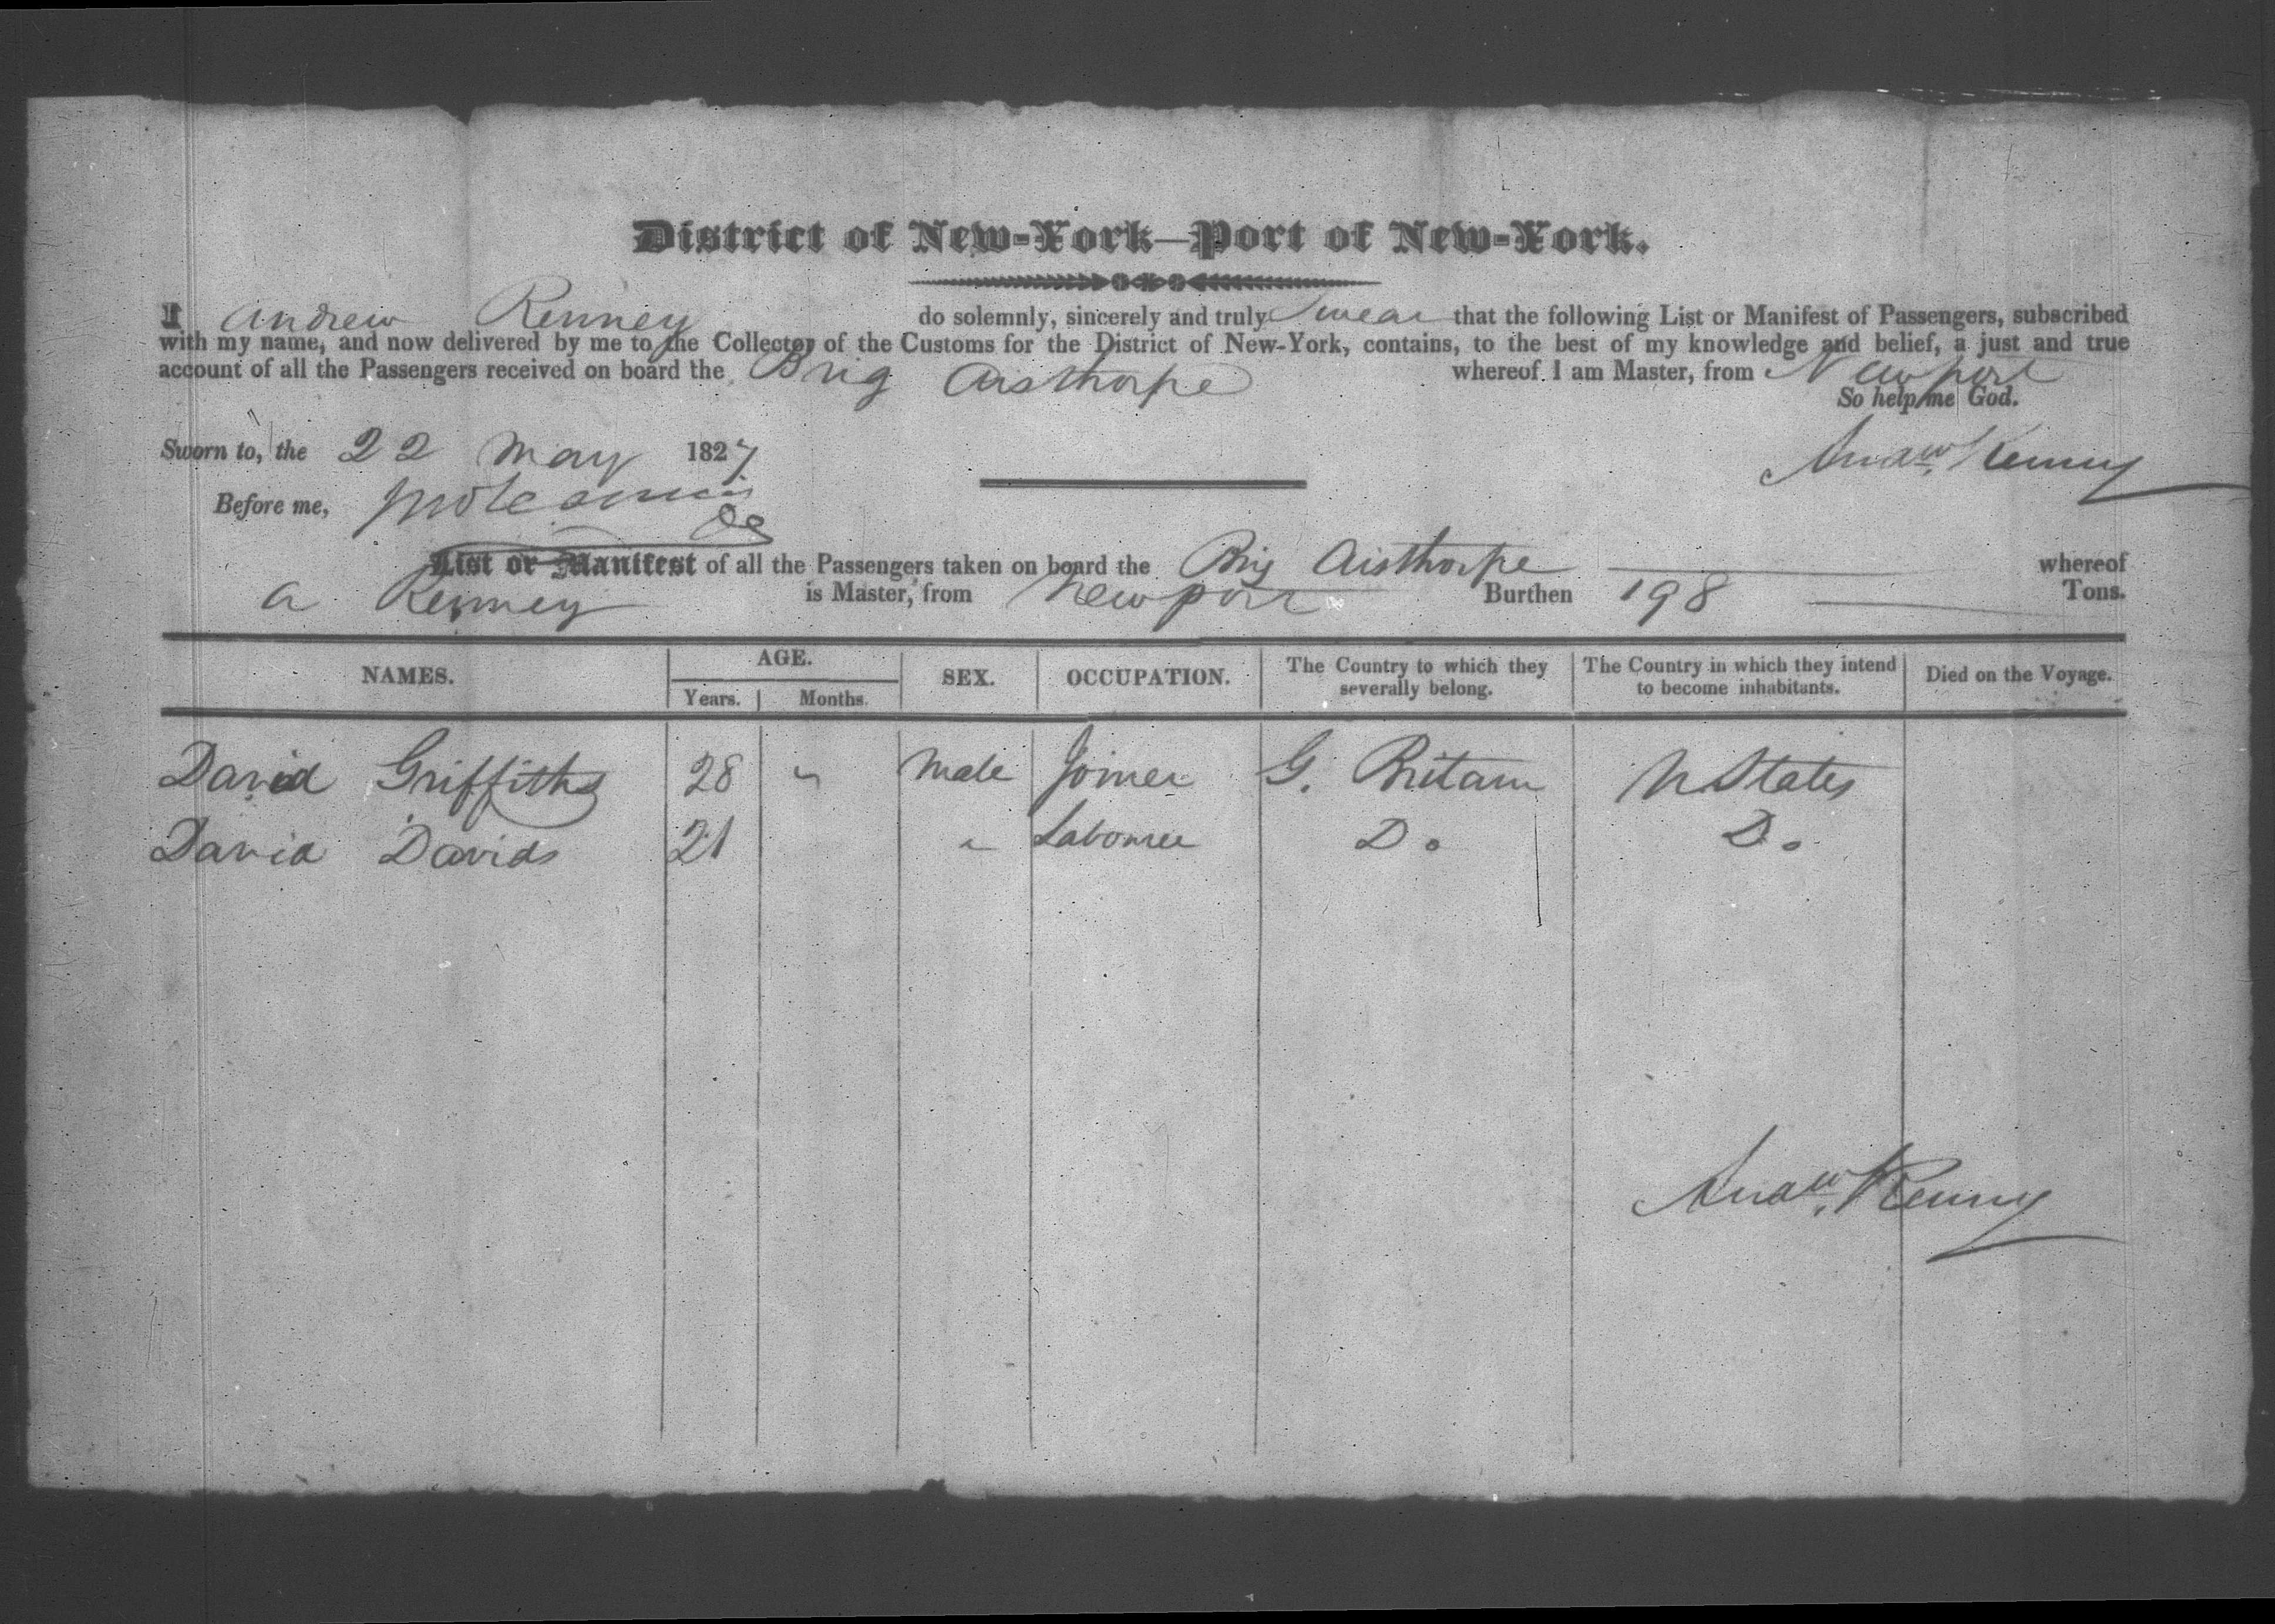 District of New-York—Port of New-York.
I Andrew Kenney do solemnly, sincerely and truly Swear that the following List or Manifest of Passengers, subscribed
with my name, and now delivered by me to the Collector of the Customs for the District of New-York, contains, to the best of my knowledge and belief, a just and true
account of all the Passengers received on board the Brig Aisthorpe whereof I am Master, from Newport
So help me God.
Sworn to, the 22 May 1827
Andw. Kenny
Before me,
List or Manifest of all the Passengers taken on board the Brig Aisthorpe whereof
A Kenney is Master, from Newport Burthen 198 Tons.
NAMES. AGE. SEX. OCCUPATION. The Country to which they severally belong. The Country in which they intend to become inhabitants. Died on the Voyage.
Years. Months.
David Griffiths 28 " Male Joiner G. Britain U States
David Davids 21 " Labourer Do Do
Andw. Kenny